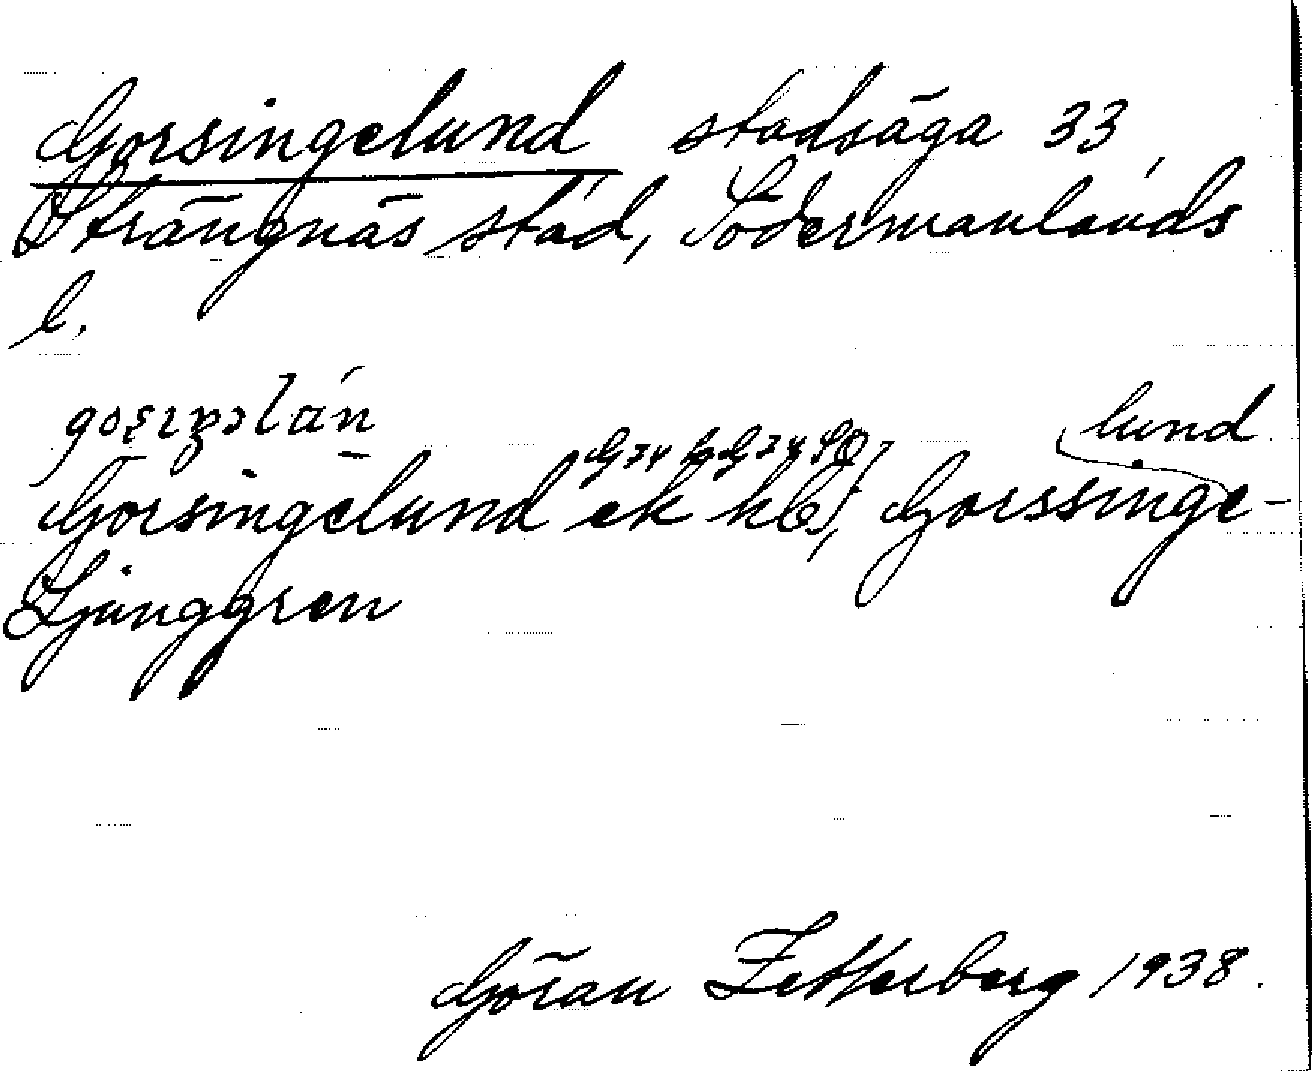 Gorsingelund stadsäga 33
Strängnäs stad, Södermanlands
l.
lund
Gorsingelund ek hbl, Gorssinge-
Ljunggren
Göran Zetterberg 1938.